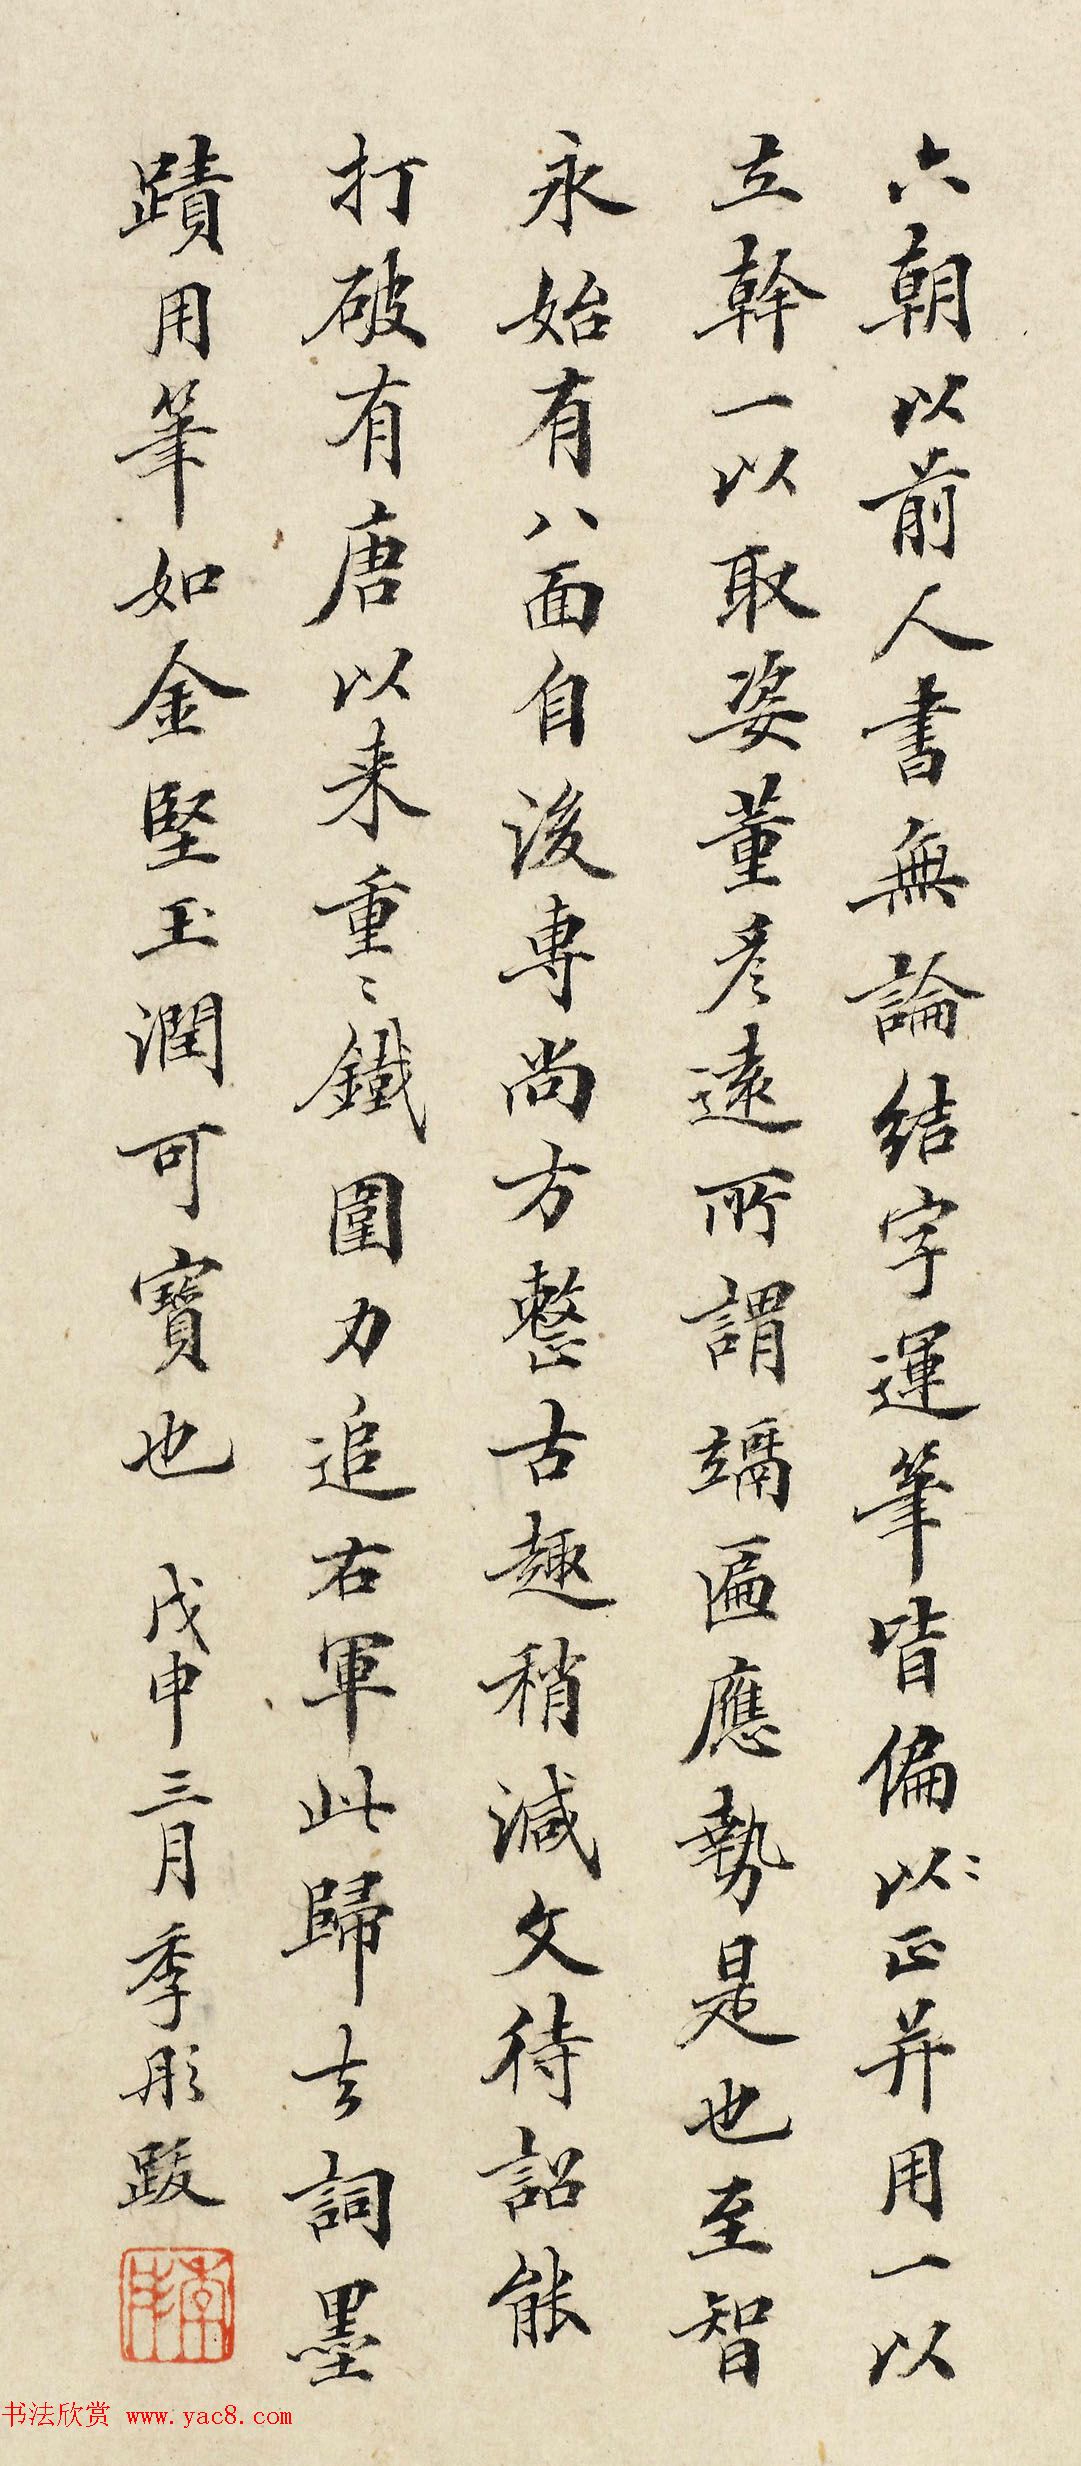 六朝以前人書無論結字運筆皆偏以〻正并用一以
立幹一以取姿董彦遠所謂竵匾應勢是也至智
永始有八面自後專尚方整古趣稍減文待詔能
打破有唐以来重〻鐵圍力追右軍此歸去詞墨
蹟用筆如金堅玉潤可寶也 戊申三月季彤跋
书法欣赏 www.yac8.com